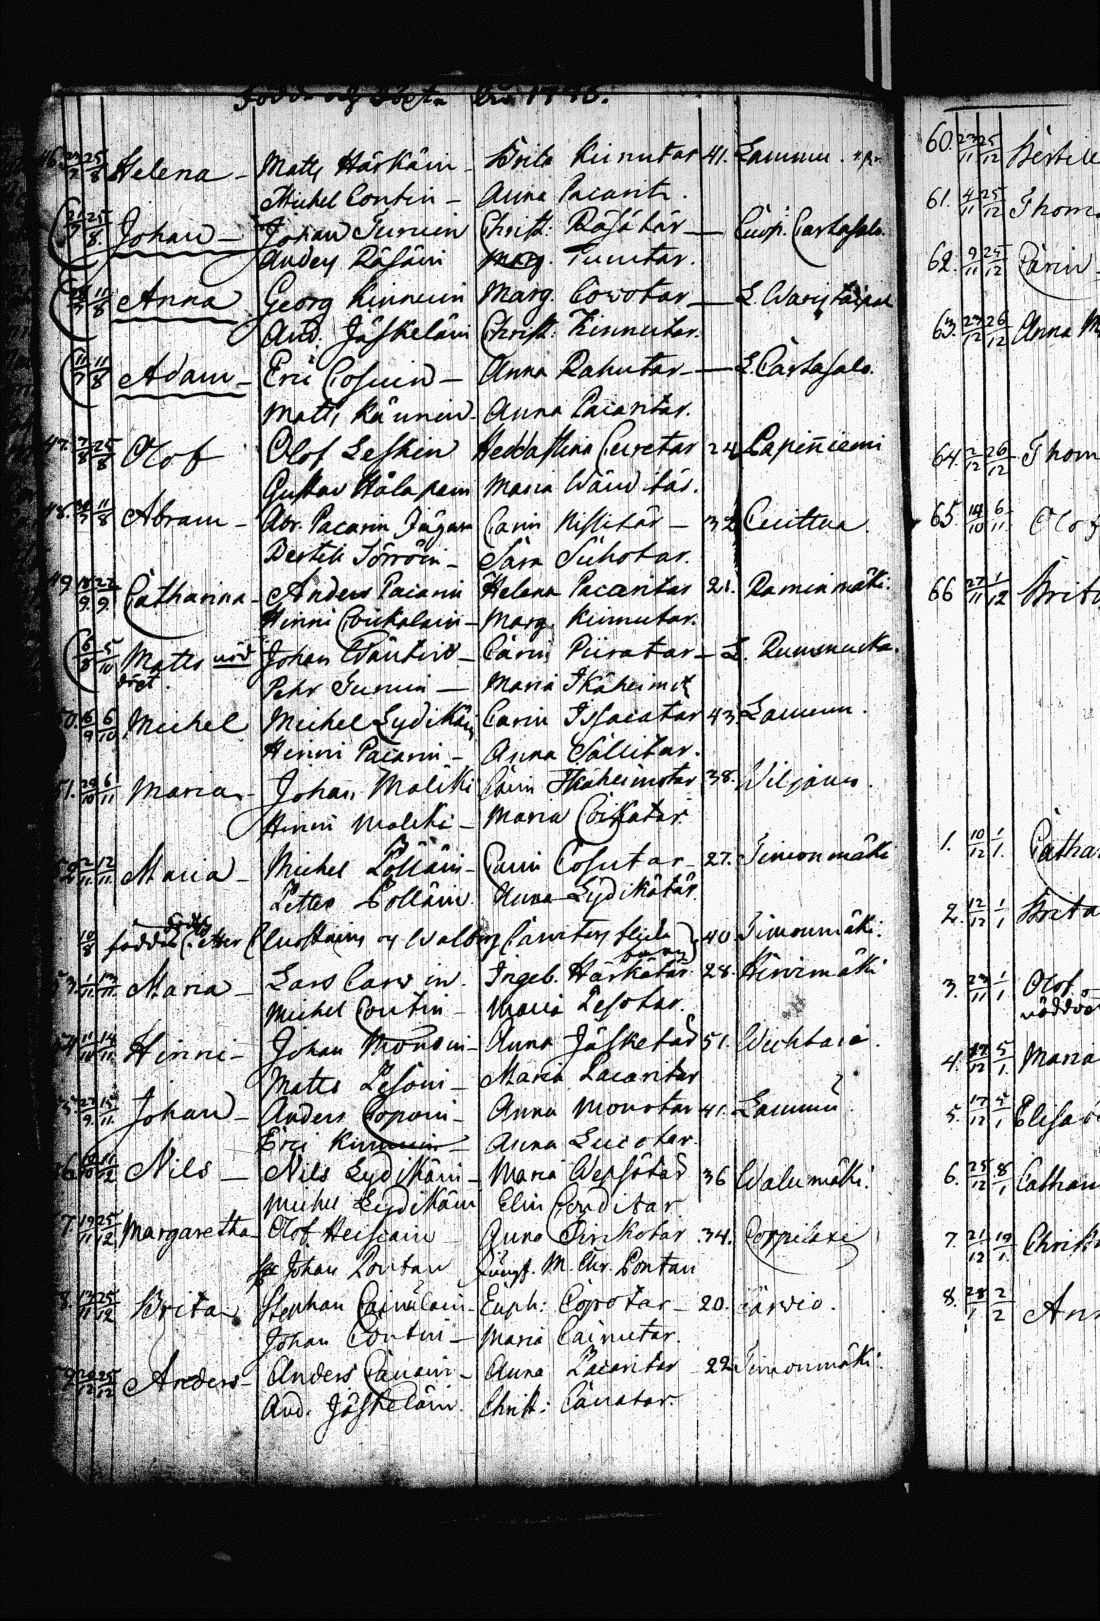 Födde och döpte Åhr 1796.
46. 23/7 25/8 Helena - Matts Härkäin - Brita Kinnutar 41. Lammu.
Michel Contin - Anna Pacarit.
25/8 Johan - Johan Turuin Christ: Räsätär - Cuop. Cartasalo.
Anders Räsäin Marg. Turutar.
11/8 Anna Georg Kinnuin Marg. Cowotar - L. Waristaipal
And. Jäskeläin Christ: Kinnutar.
11/7 11/8 Adam - Eric Cosuin - Anna Rahutar - L. Cartasalo.
Matts Känuin - Anna Pacaritar.
47. 7/8 25/8 Olof Olof Leskin Hedda Stina Curetar 24 Lapinniemi
Gustav Hälapain Maria Wänitär.
48. 11/8 Abram - Abr. Pacarin Jägare Carin Nissitär - 32 Cuttua
Bertil Törröin - Sara Sihotar.
49 18/9 22/9 Catharina - Anders Pacarin Helena Pacaritar 21. Raminmäki.
Hinni Coickalain - Marg. Kinnutar.
6/8 5/10 Matts nöd döpt. Johan Wäntin - Carin Piiratar - L. Rummucka.
Pehr Turuin - Maria Ikäheimot
50. 16/9 6/10 Michel Michel Lydikäin Carin Issacatar 43 Lammu.
Hinni Pacarin - Anna Sallitar.
51. 29/10 6/11 Maria - Johan Malicki Carin Ikäheimotar 38. Wiljanus.
Hinni Malicki - Maria Coickatar
52. 2/11 12/11 Maria - Michel Pölläin - Carin Cosutar - 27. Timonmäki
Petter Pölläin Anna Lydikätär.
10/8 40 Timonmäki.
53. 1/11 13/11 Maria - Lars Carwin. Ingeb. Härkätär 28. Hirvimäki
Michel Contin - Maria Lesotar.
54. 11/11 14/11 Hinni - Johan Monoin - Anna Jäsketär 51. Wechtaia.
Matts Lesöin - Maria Pacaritar
55. 27/9 15/11 Johan - Anders Copoin - Anna Monotar 41. Lammu
Eric Kinnuin - Anna Lucotar.
56. 11/12 Nils - Nils Lydikäin - Maria Wepsätär 36 Walumäki.
Michel Lydikäin Elin Conditar.
57. 19/11 25/12 Margaretha Olof Heiscain Anna Pirikotar 34. Coppilaxi
Johan Pontan Jungf. M. Chr. Pontan
58. 13/11 25/12 Brita Stephan Cainulain - Euph: Coprotar - 20. Särwio.
Johan Contin - Maria Cainutar.
59. 20/12 25/12 Anders - Anders Canain - Anna Pacaritar 22 Timonmäki.
And. Jäskeläin. Christ: Canatar.
60. 23/11 25/12 Bertil
61. 4/11 25/12 Thom
62. 9/11 25/12 Carin
63. 23/12 26/12 Anna M
64. 2/12 26/12 Thom
65. 14/10 6/11 Olof
66 27/11 1/12 Brita
1. 10/12 1/1 Catha
2. 12/12 1/1 Brita
3. 23/11 1/1 Olof
nöddö
4. 17/12 5/1 Maria
5. 17/12 5/1 Elisab
6. 25/12 8/1 Cathari
7. 21/12 19/1 Christ
8. 28/1 2/2 Ann